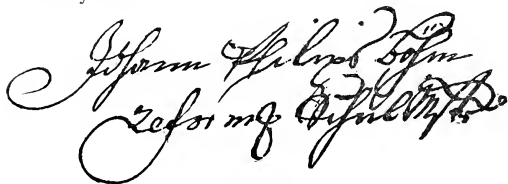 Johann Philips Böhm
reform Schulmstr